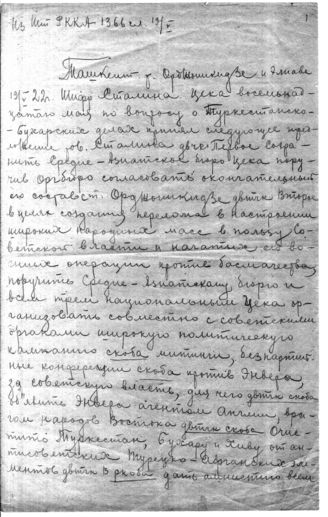 Из Шт РККА 1366 сл. 19/V
1
Ташкент т. Орджоникидзе и Элиаве
19/V 22г. Шифр Сталина Цека восемнад-
цатого мая по вопросу о Туркестанско-
Бухарских делах принял следующее пред-
ложение тов. Сталина двтчк Первое сохра-
нить Средне-Азиатское бюро Цека пору-
чив Оргбюро согласовать окончательный
его состав с т. Орджоникидзе двтчк Второе
в целях создания перелома в настроении
широких народных масс в пользу Со-
ветской власти и начатых ею во-
енных операций против басмачества
поручить Средне-Азиатскому бюро и
всем трем национальным Цека ор-
ганизовать совместно с советскими
органами широкую политическую
кампанию скоба митинги, беспартий-
ные конференции скоба против Энвера,
за советскую власть, для чего двтчк скоба
объявить Энвера агентом Англии, вра-
гом народов Востока двтчк скоба Очис-
тить Туркестан, Бухару и Хиву от ан-
тисоветских Турецко-Афганских эле-
ментов двтчк В скоба дать амнистию всем